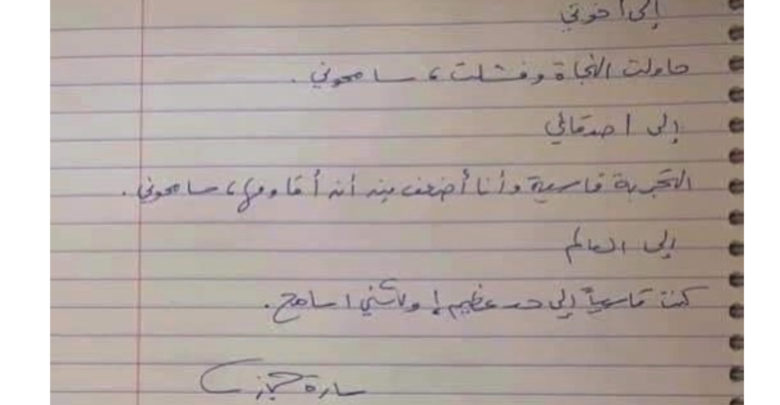 إلى أخوتي
حاولت النجاة وفشلت، سامحوني.
إلى اصدقائي
التجربة قاسية وأنا أضعف من أن أقاومها، سامحوني.
إلى العالم
كنت قاسياً إلى حد عظيم! ولكني اسامح.
سارة حجازي